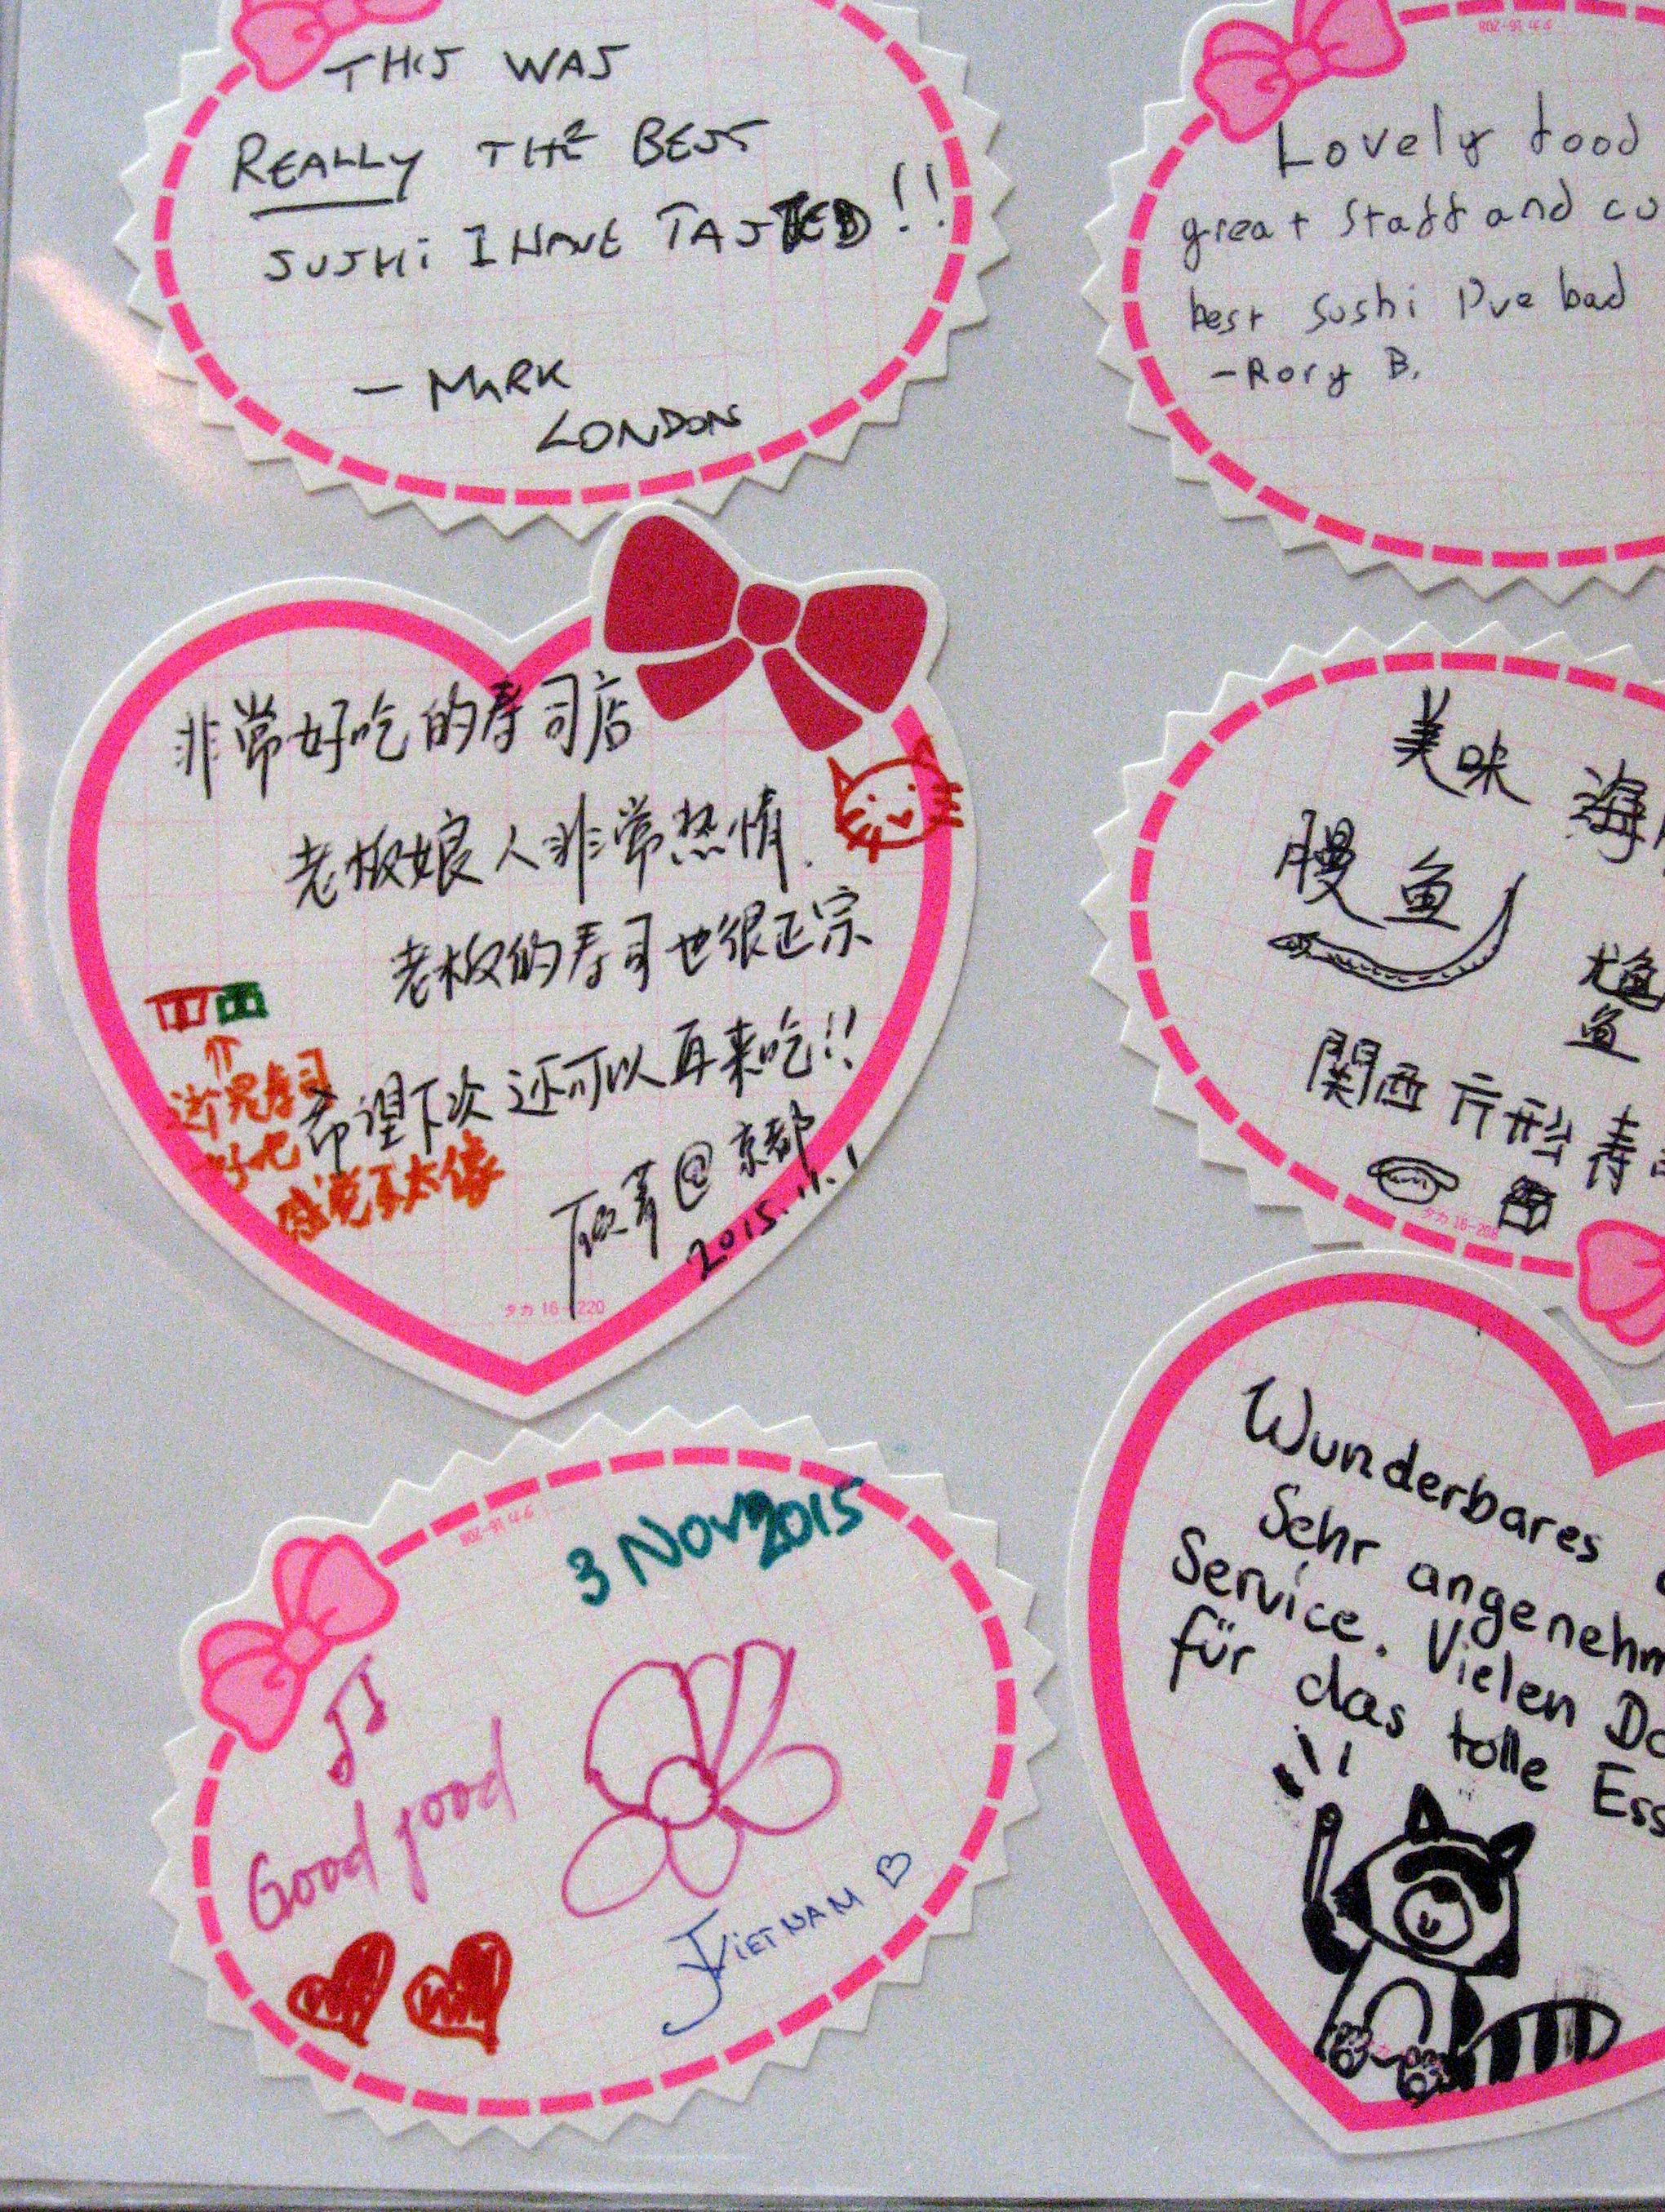 THIS WAS
REALLY THE BEST
SUSHI I HAVE TASTED!!
— MARK
LONDON
タカ 16-208
Lovely food
great staff and co
best sushi I've had
-Rory B.
非常好吃的寿司店
老板娘人非常热情.
老板的寿司也很正宗
希望下次还可以再来吃!!
@京都
2015.11.1
这是寿司
好吧
感觉不太像
タカ 16-220
美味 海
鳗鱼
鱼
関西 方形 寿
タカ 16-208
タカ 16-208
3 Nov 2015
Good food
VIETNAM ♡
Wunderbares
Sehr angenehm
Service. Vielen Da
für das tolle Ess